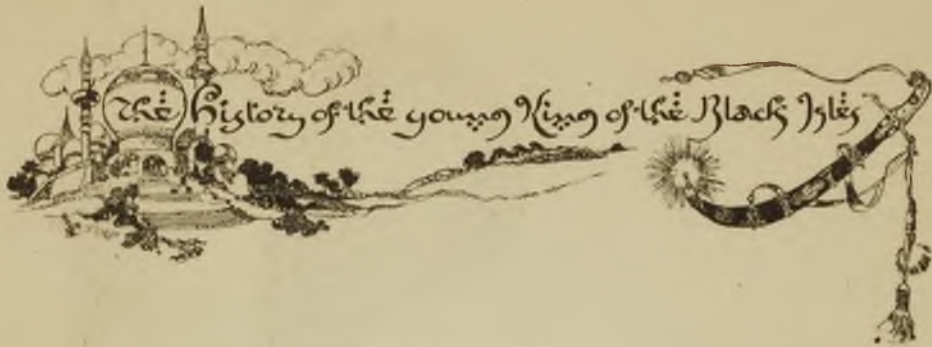 The History of the young King of the Black Isles